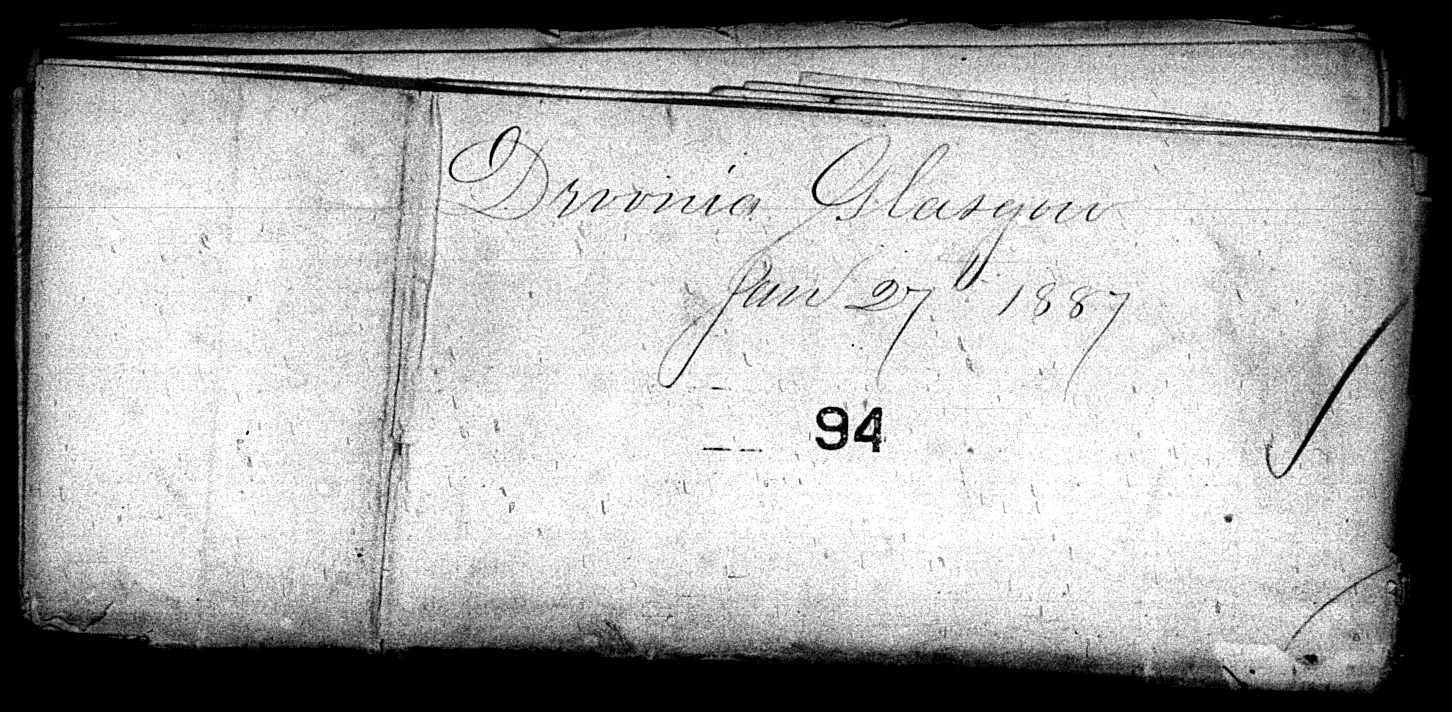 Devonia Glasgow
Jan 27" 1887
94